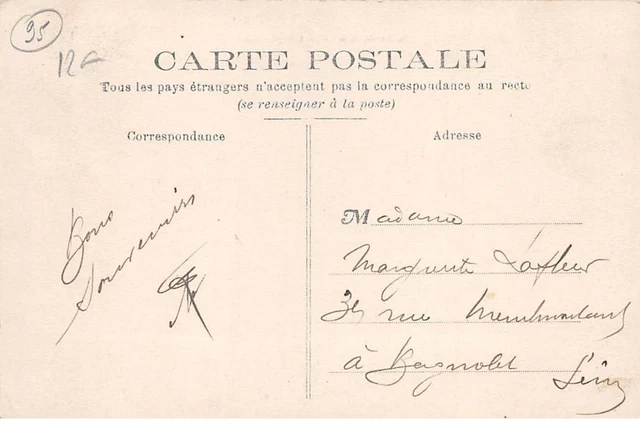 95
CARTE POSTALE
Tous les pays étrangers n'acceptent pas la correspondance au recto
(se renseigner à la poste)
Correspondance
Adresse
Bons
Souvenirs
Madame
Marguerite Lafleur
rue
à Bagnolet
Seine